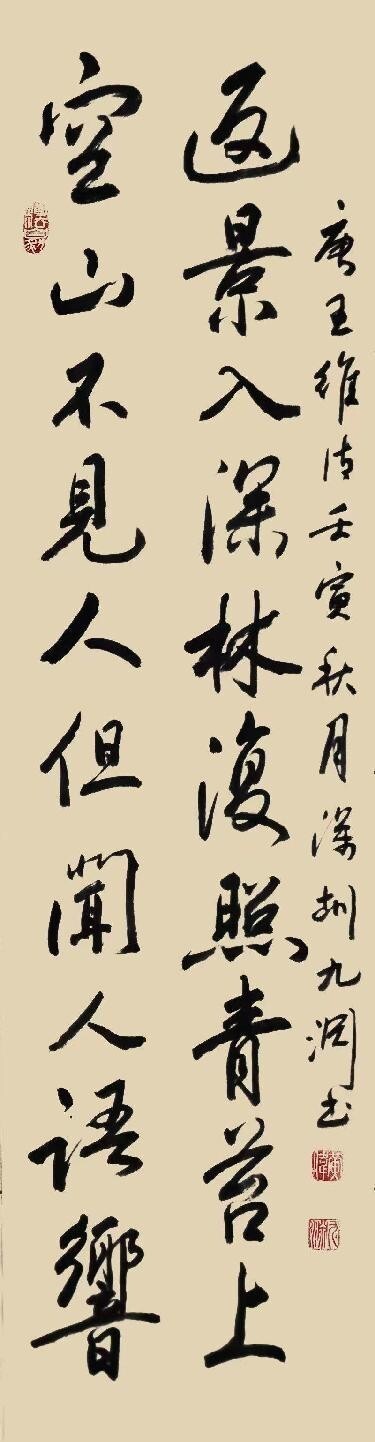 空山不見人但聞人語響
返景入深林復照青苔上
唐王維詩壬寅秋月深圳九書